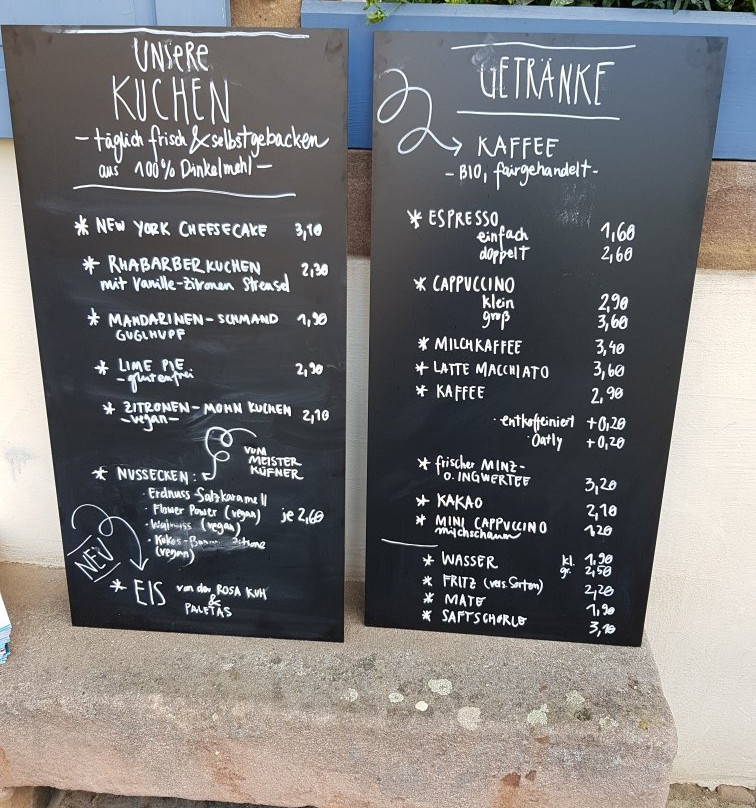 UNSERE
KUCHEN
- täglich frisch & selbstgebacken
aus 100% Dinkelmehl -
* NEW YORK CHEESECAKE 3,10
* RHABARBERKUCHEN 2,30
mit Vanille-Zitronen Streusel
* MANDARINEN-SCHMAND 1,90
GUGLHUPF
* LIME PIE 2,90
- glutenfrei
* ZITRONEN-MOHN KUCHEN 2,10
- vegan -
VOM
MEISTER
KÜFNER
* NUSSECKEN:
· Erdnuss-Salzkaramell
· Flower Power (vegan) je 2,60
· Walnuss (vegan)
· Kokos-
(vegan)
NEU
* EIS von der ROSA KUH
&
PALETAS
GETRÄNKE
KAFFEE
- BIO, fairgehandelt -
* ESPRESSO
einfach 1,60
doppelt 2,60
* CAPPUCCINO
klein 2,90
groß 3,60
* MILCHKAFFEE 3,40
* LATTE MACCHIATO 3,60
* KAFFEE 2,90
· entkoffeiniert +0,20
Oatly +0,20
* frischer MINZ-
O. INGWERTEE 3,20
* KAKAO 2,10
* MINI CAPPUCCINO 1,20
milchschaum
* WASSER kl. 1,90
gr. 2,50
* FRITZ (vers. Sorten) 2,20
* MATE 1,90
* SAFTSCHORLE 3,10